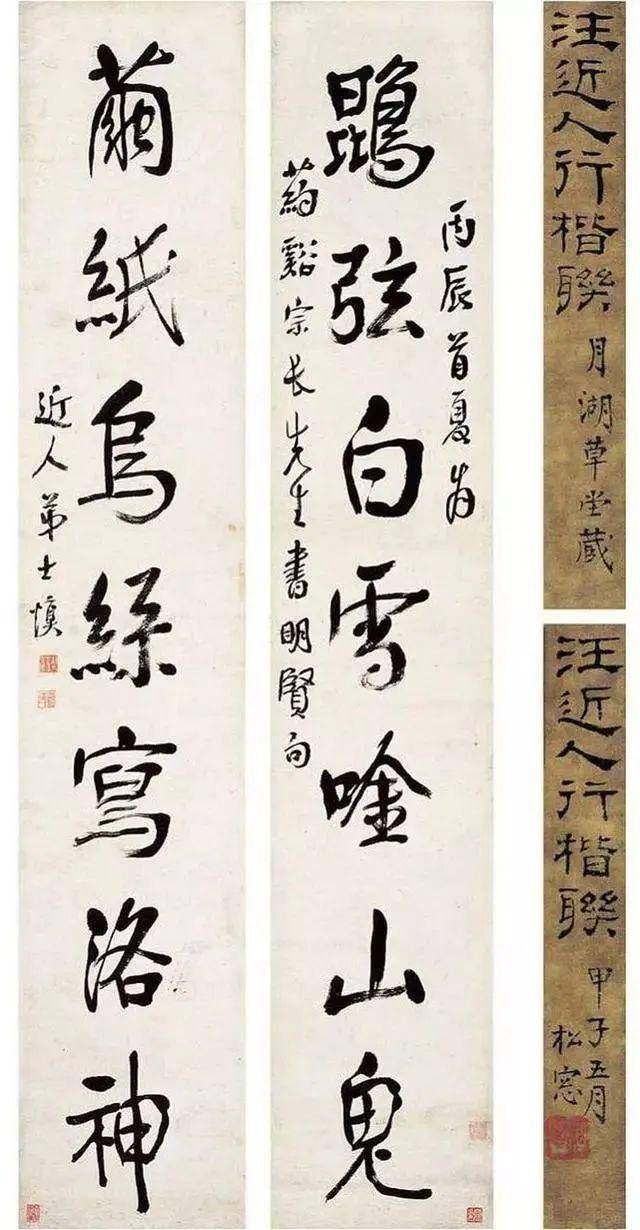 丙辰首夏为
鵾弦白雪唫山鬼
谿宗长先生書明賢句
繭紙烏絲寫洛神
近人弟士慎
汪近人行楷聯
月湖草堂藏
汪近人行楷聯
甲子五月
松窓